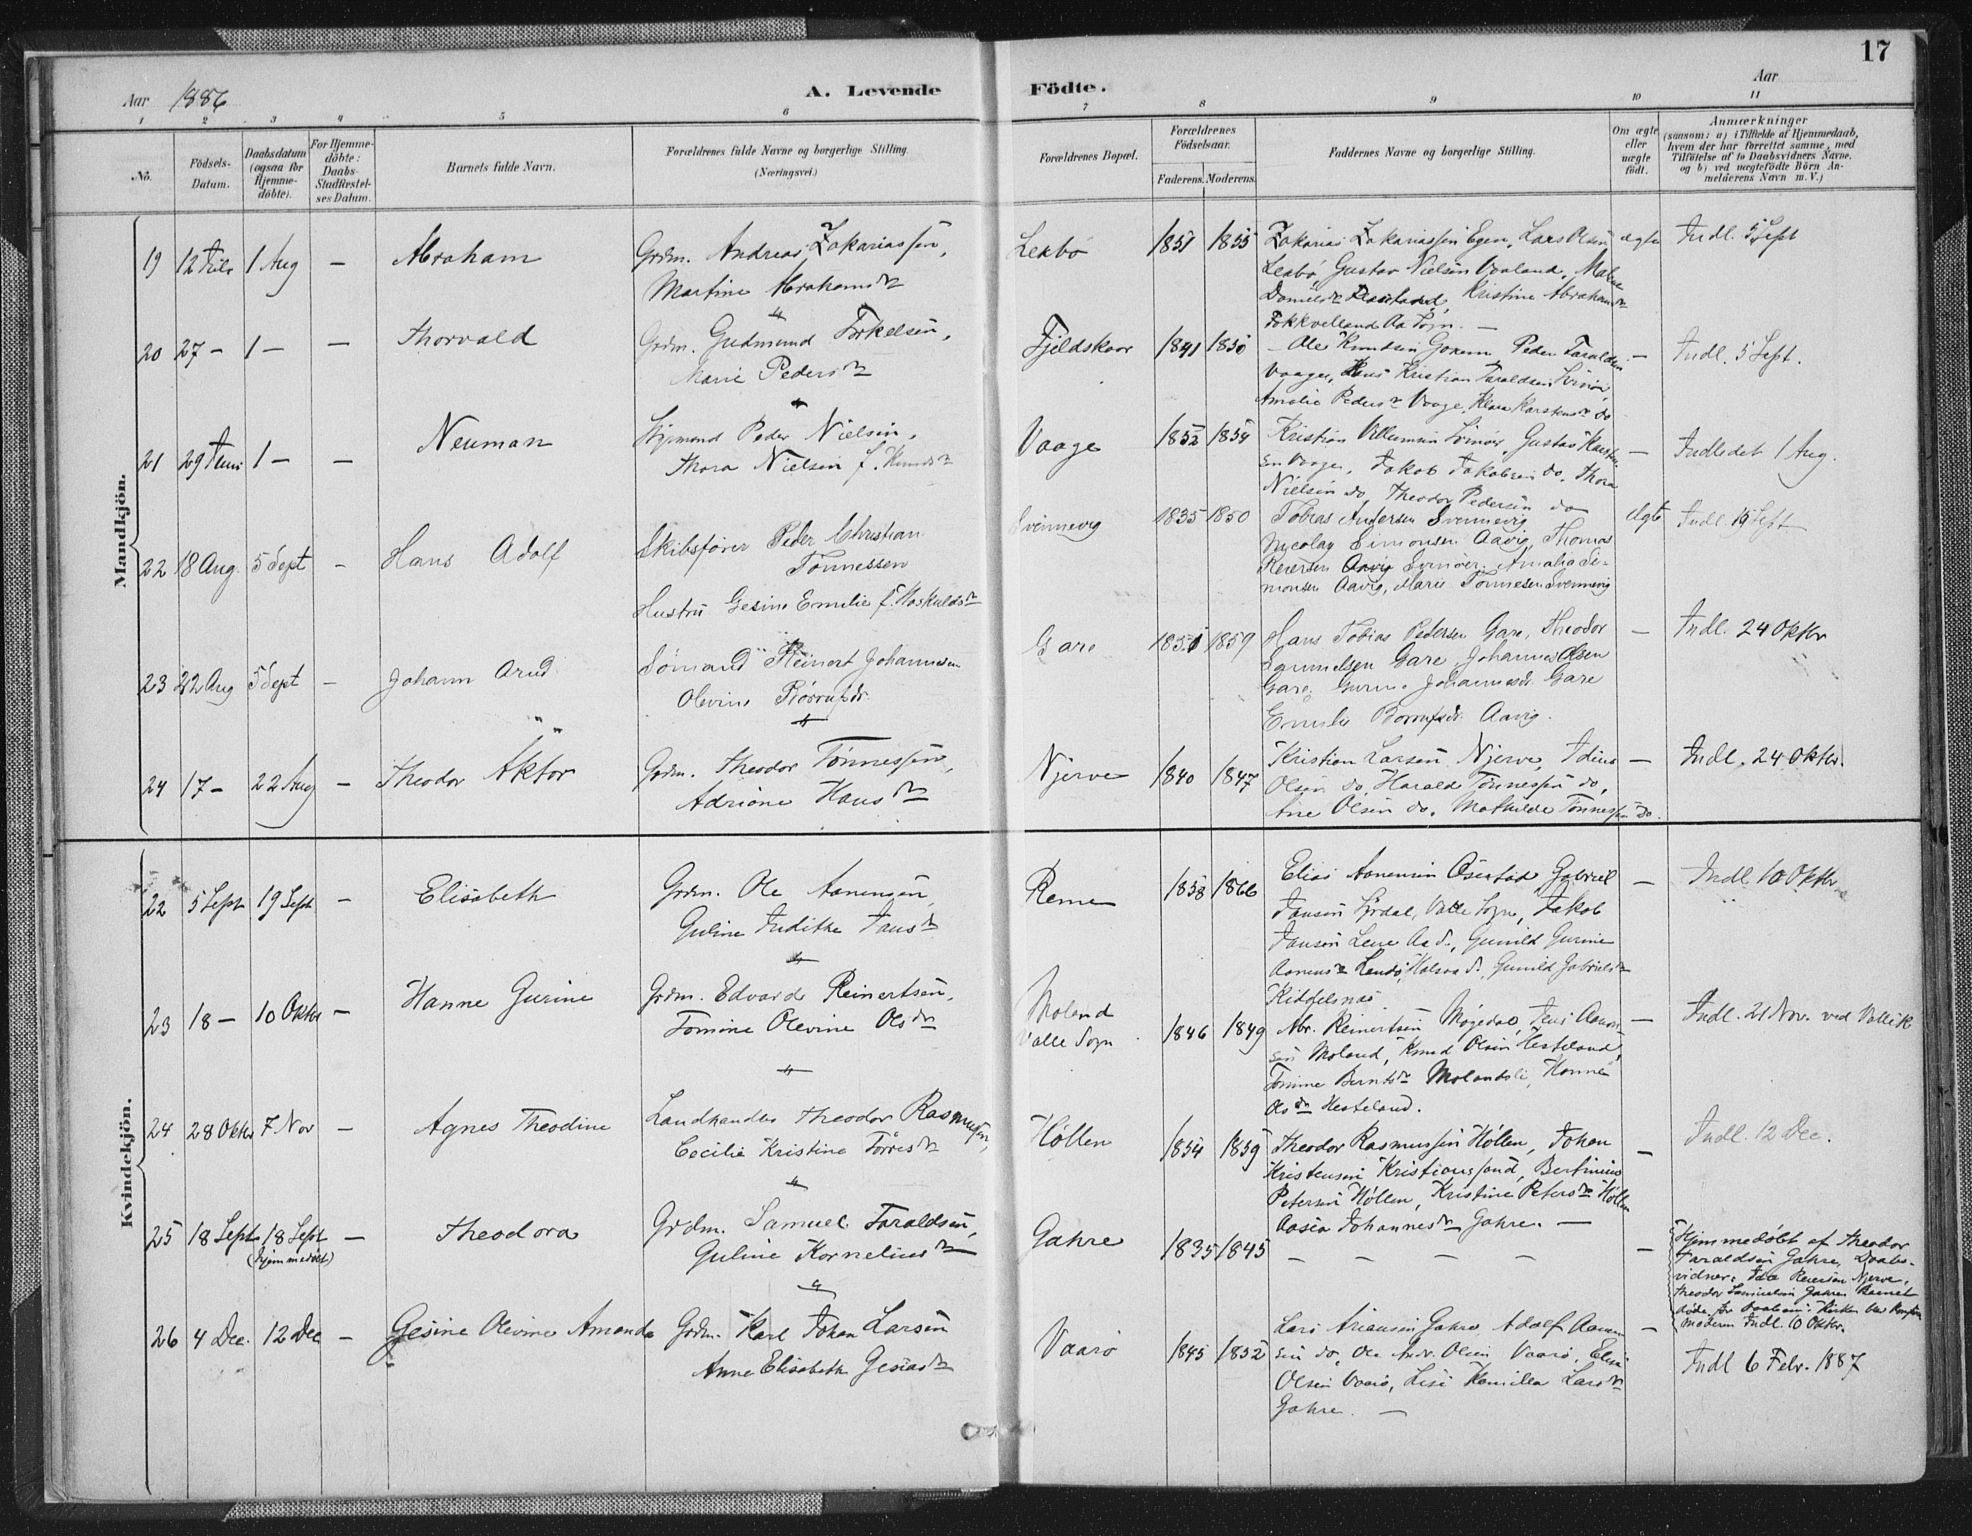 17
Aar 1886
A. Levende Födte.
Aar
1 2 3 4 5 6 7 8 9 10 11
No.
Födsels-Datum.
Daabsdatum (ogsaa for Hjemme-döbte).
For Hjemme-döbte: Daabs-Stadfæstel-ses Datum.
Barnets fulde Navn.
Forældrenes fulde Navne og borgerlige Stilling (Næringsvei.)
Forældrenes Bopæl.
Forældrenes Födselsaar.
Faderens. Moderens.
Faddernes Navne og borgerlige Stilling.
Om ægte eller uægte födt.
Anmærkninger
(saasom: a) i Tilfælde af Hjemmedaab,
hvem der har forrettet samme, med
Tilföielse af to Daabsvidners Navne,
og b) ved uægtefödte Börn An-
melderens Navn m. V.)
Mandkjön.
19 12 Juli 1 Aug — Abraham
Grdm. Andreas Zakariassen,
Martine Abrahamsdr
Lexbø 1851 1855
Zakarias Zakariassen Egen, Lars Olsen
Lexbø, Gustav Nielsen Vaaland,
Kristine Abrahamsdr
Sogn. —
ægte Indl. 5 Sept
20 27 — 1 — — Thorvald
Grdm. Gudmund Torkelsen,
Marie Pedersdr
Fjeldskaar 1841 1850
Ole Knudsen Peder Taraldsen
Vaage, Kristian Taraldsen Svinør,
Amalie Pedersdr Vaage, Klara Karstensdr do
— Indl. 5 Sept.
21 29 Juni 1 — — Neuman
Styrmand Peder Nielsen,
Thora Nielsen f. Knudsdr
Vaage 1852 1854
Kristian Villumsen Svinør, Gustav Karsten-
sen Vaage, Jakob Jakobsen do, Thora
Nielsen do, Theodor Pedersen do
— Indledet 1 Aug.
22 18 Aug. 5 Sept — Hans Adolf
Skibsfører Peder Christian
Tønnessen
Hustru Gesine Emilie f. Haskildsdr
Svennevig 1835 1850
Tobias Andersen Svennevig
Nicolay Simonsen Aavig, Thomas
Reiersen Svinøer. Amalia Si-
monsen Aavig, Marie Tønnesen Svennevig
ægte Indl. 19 Sept
23 22 Aug 5 Sept — Johann Arud
Sømand Reinert Johannesen
Olevine
Gare 1851 1859
Hans Tobias Pedersen Gare, Theodor
Samuelsen Gare, Johannes Olsen
Gare, Johannesdr. Gare
Emilie Aavig.
— Indl. 24 Oktbr
24 17 — 22 Aug — Theodor Aktor
Grdm. Theodor Tønnessen,
Adriane Hansdr
Njerve 1840 1847
Kristian Larsen Njerve, Idius
Olsen do, Harald Tønnessen do,
Ane Olsen do, Mathilde Tønnessen do.
— Indl. 24 Oktbr.
Kvindekjön.
22 5 Sept 19 Sept — Elisabeth
Grdm. Ole Aanensen,
Guline Judithe Jansdr
Reme 1858 1866
Elias Aanensen Osestad, Gabriel
Jansen Valle Sogn, Jakob
Jansen Lene Aa S., Gunild Gurine
Aanensdr Halsaa S., Gunild Gabrielsdr
— Indl. 10 Oktbr.
23 18 — 10 Oktbr — Hanne Gurine
Grdm. Edvard Reinertsen,
Tomine Olevine Olsdr
Moland
Valle Sogn 1846 1849
Abr. Reinertsen Møgedal, Jens Aanen-
sen Moland, Knud Olsen Hesteland,
Tomine Berntsdr Molandsli, Hanne
Olsdr Hesteland.
— Indl. 21 Nov. ved Valle K
24 28 Oktbr 7 Nov — Agnes Theodine
Landhandler Theodor Rasmussen,
Cecilie Kristine Tørresdr
Høllen 1854 1859
Theodor Rasmussen Høllen, Johan
Kristensen Kristiansand, Bertinius
Petersen Høllen, Kristine Petersdr Høllen
Aasea Johannesdr Gahre. —
— Indl. 12 Dec.
25 18 Sept 18 Sept (hjemmedøbt) — Theodora
Grdm. Samuel Taraldsen,
Guline Korneliusdr
Gahre 1835 1845 — — — —
— Hjemmedøbt af Theodor
Taraldsen Gahre, Daabs-
vidner: Ida Reiersen Njerve,
Theodor Samuelsen Gahre. Barnet
døde før Daaben i Kirken
Moderen Indl. 10 Oktbr.
26 4 Dec. 12 Dec — Gesine Olevine Amanda
Grdm. Karl Johan Larsen
Anne Elisabeth Gesiasdr
Vaarø 1845 1852
Lars Ariansen Gahre, Adolf Aanen-
sen do, Ole Andr. Olsen Vaarø, Elise
Olsen Vaarø, Lise Kamilla Larsdr
Gahre. —
— Indl 6 Febr. 1887